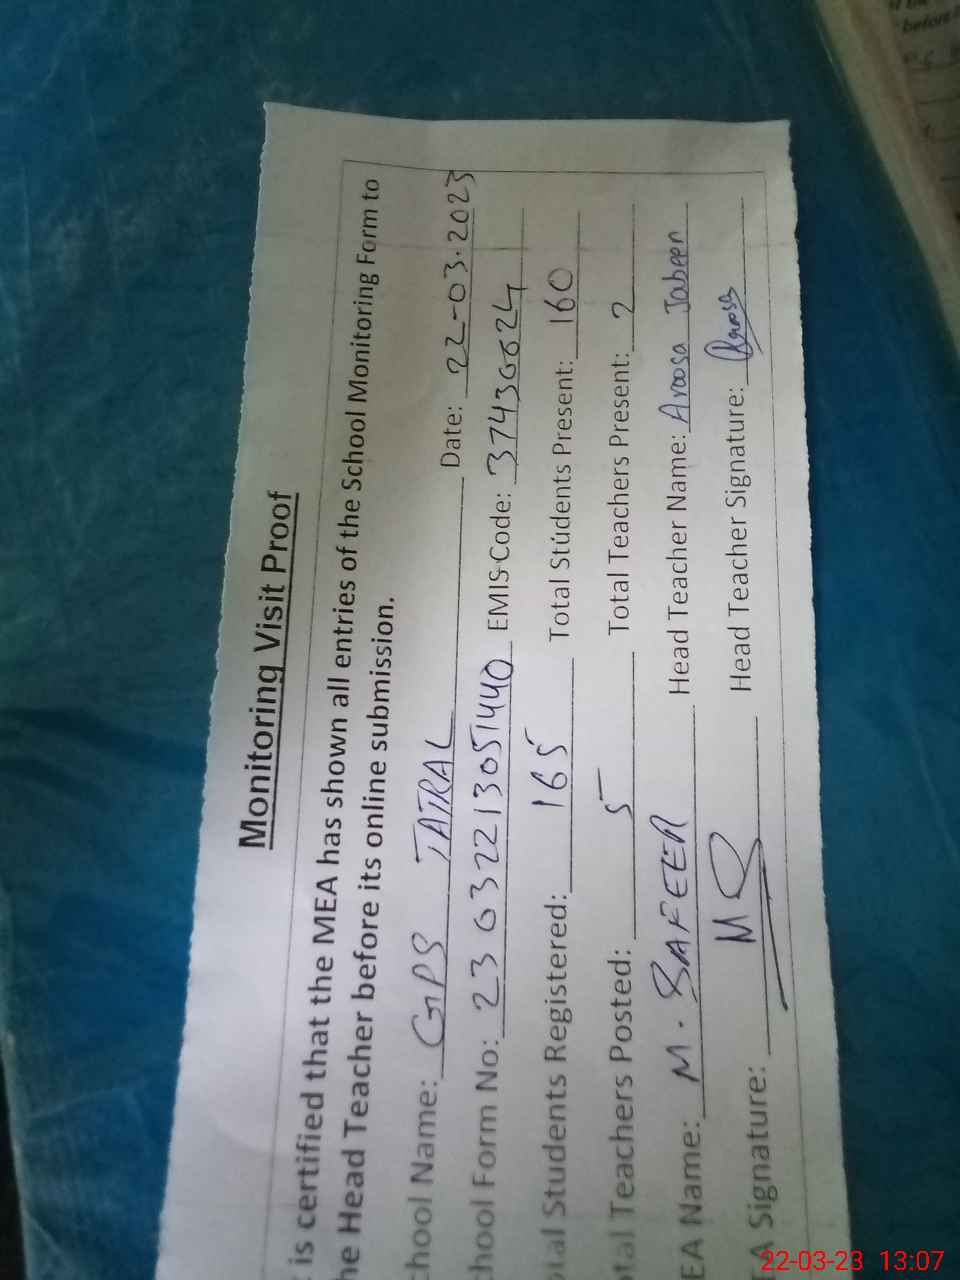 Monitoring Visit Proof
is certified that the MEA has shown all entries of the School Monitoring Form to
he Head Teacher before its online submission.
chool Name: GPS TATRAL Date: 22-03-2023
chool Form No: 23 032213051440 EMIS Code: 37430024
otal Students Registered: 165 Total Students Present: 160
otal Teachers Posted: 5 Total Teachers Present: 2
EA Name: M. SAFEER Head Teacher Name: Aroosa Jabeen
EA Signature: Head Teacher Signature: Aroosa
before
22-03-23 13:07